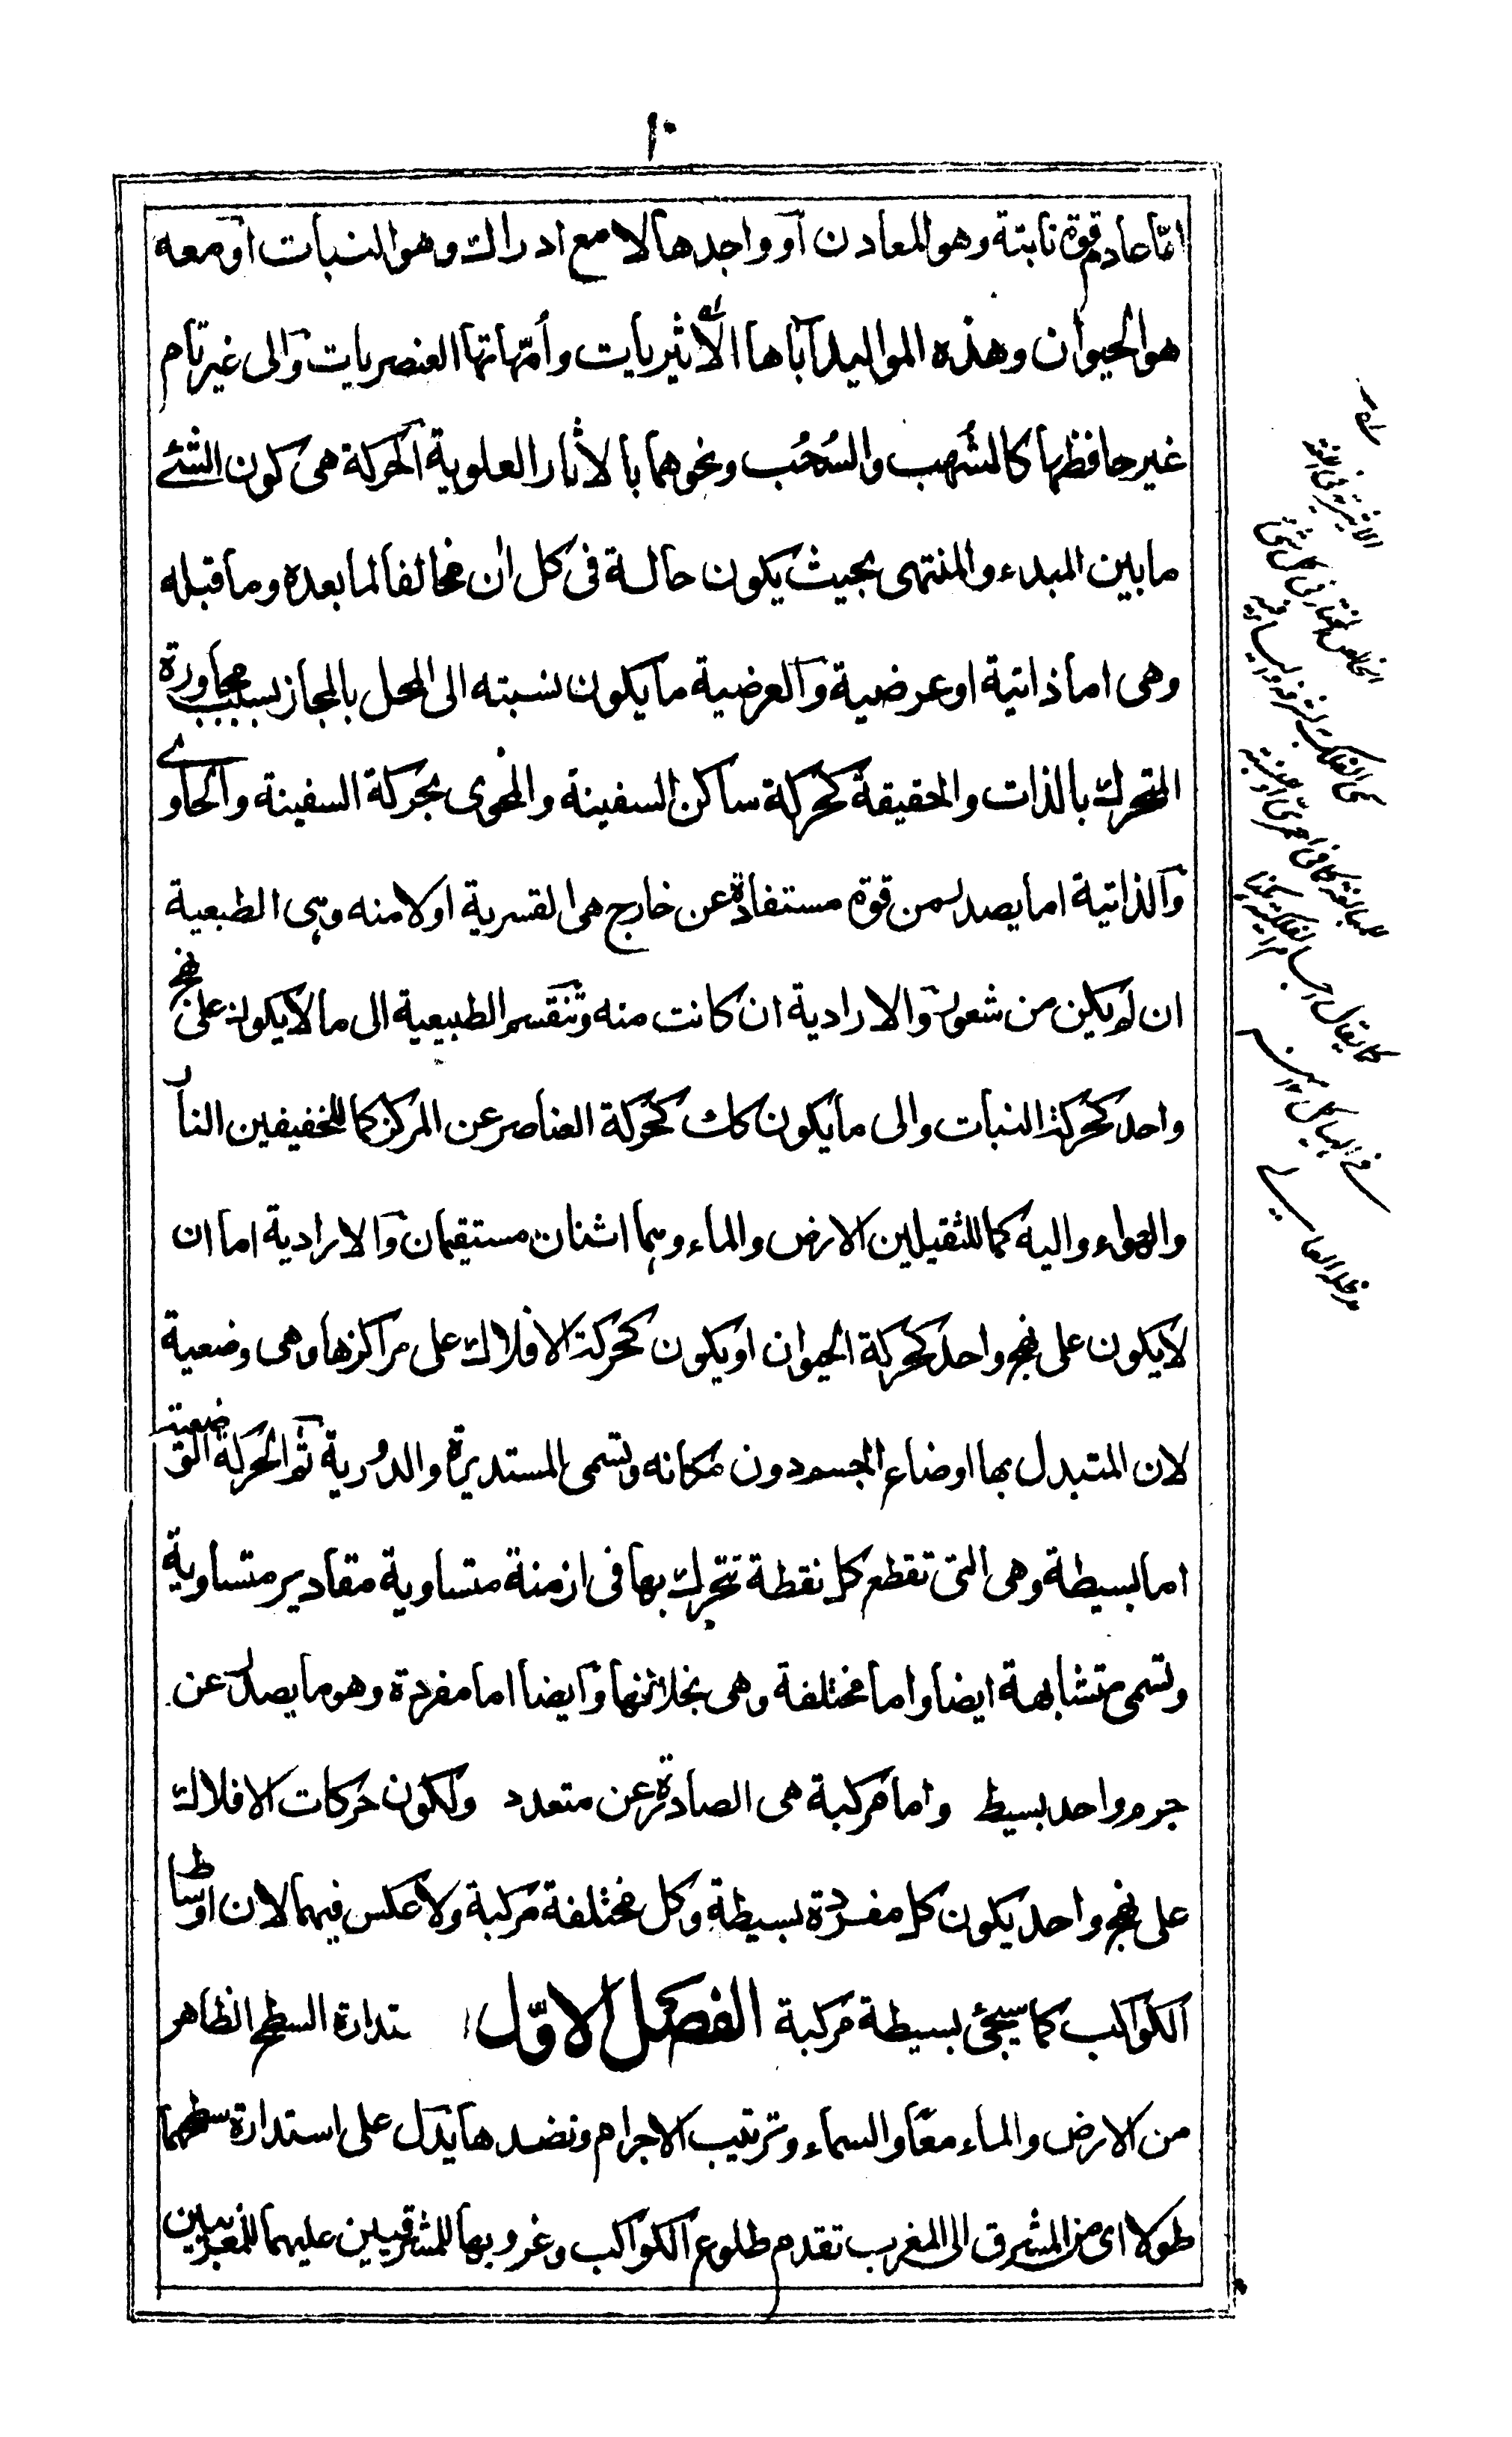 ١٠
اما عادم قوة نابتة وهو المعادن او واجدها لا مع ادراك وهو النبات او معه
هو الحيوان وهذه المواليد آباها الأثيريات وأمّهاتها العنصريات والى غير تام
غير حافظها كالشهب والسُحُب ونحوهما بالاثار العلوية الحركة هى كون الشئ
ما بين المبدء والمنتهى بحيث يكون حالة فى كل ان مخالفا لما بعده وما قبله
وهى اما ذاتية او عرضية والعرضية ما يكون نسبته الى المحل بالمجاز بسبب مجاورة
المتحرك بالذات والحقيقة كحركة ساكن السفينة والمحوى بحركة السفينة والحاوى
والذاتية اما يصدر من قوة مستفادة عن خارج هى القسرية او لا منه وهى الطبعية
ان لم يكن من شعور والارادية ان كانت منه وتنقسم الطبيعية الى ما لا يكون على نهج
واحد كحركة النبات والى ما يكون كك كحركة العناصر عن المركز كما للخفيفين النار
والهواء واليه كما للثقيلين الارض والماء وهما اثنان مستقيمان والارادية اما ان
لا يكون على نهج واحد كحركة الحيوان او يكون كحركة الافلاك على مراكزها وهى وضعية
لان المتبدل بها اوضاع الجسم دون مكانه وتسمى المستديرة والدورية ثم الحركة الوضعية
اما بسيطة وهى التى تقطع كل نقطة تتحرك بها فى ازمنة متساوية مقادير متساوية
وتسمى متشابهة ايضا واما مختلفة وهى بخلافها وايضا اما مفردة وهو ما يصدر عن
جرم واحد بسيط واما مركبة هى الصادرة عن متعدد ولكون حركات الافلاك
على نهج واحد يكون كل مفردة بسيطة وكل مختلفة مركبة ولا عكس فيهما لان اوساط
الكواكب كما سيجئ بسيطة مركبة الفصل الاوّل ستدارة السطح الظاهر
من الارض والماء معا والسماء وترتيب الاجرام ونضدها يدل على استدارة سطحهما
طولا اى من المشرق الى المغرب تقدم طلوع الكواكب وغروبها للمشرقيين عليهما للمغربيين